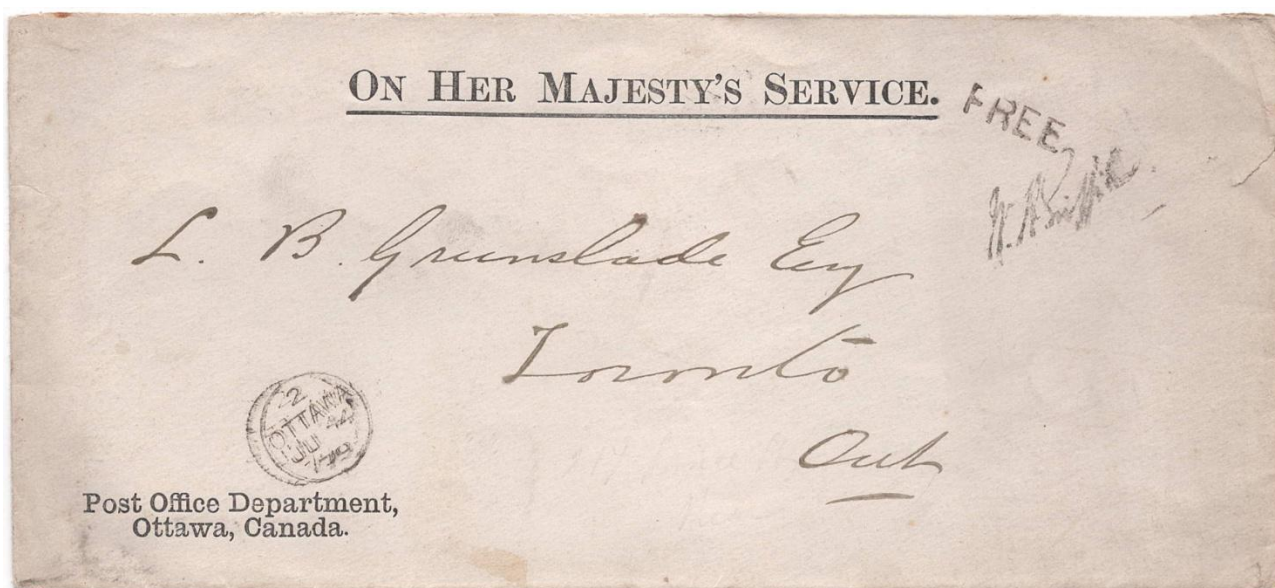 ON HER MAJESTY'S SERVICE.
FREE
L. B. Greenslade Esq
Toronto
Ont
2
OTTAWA
JU
Post Office Department,
Ottawa, Canada.